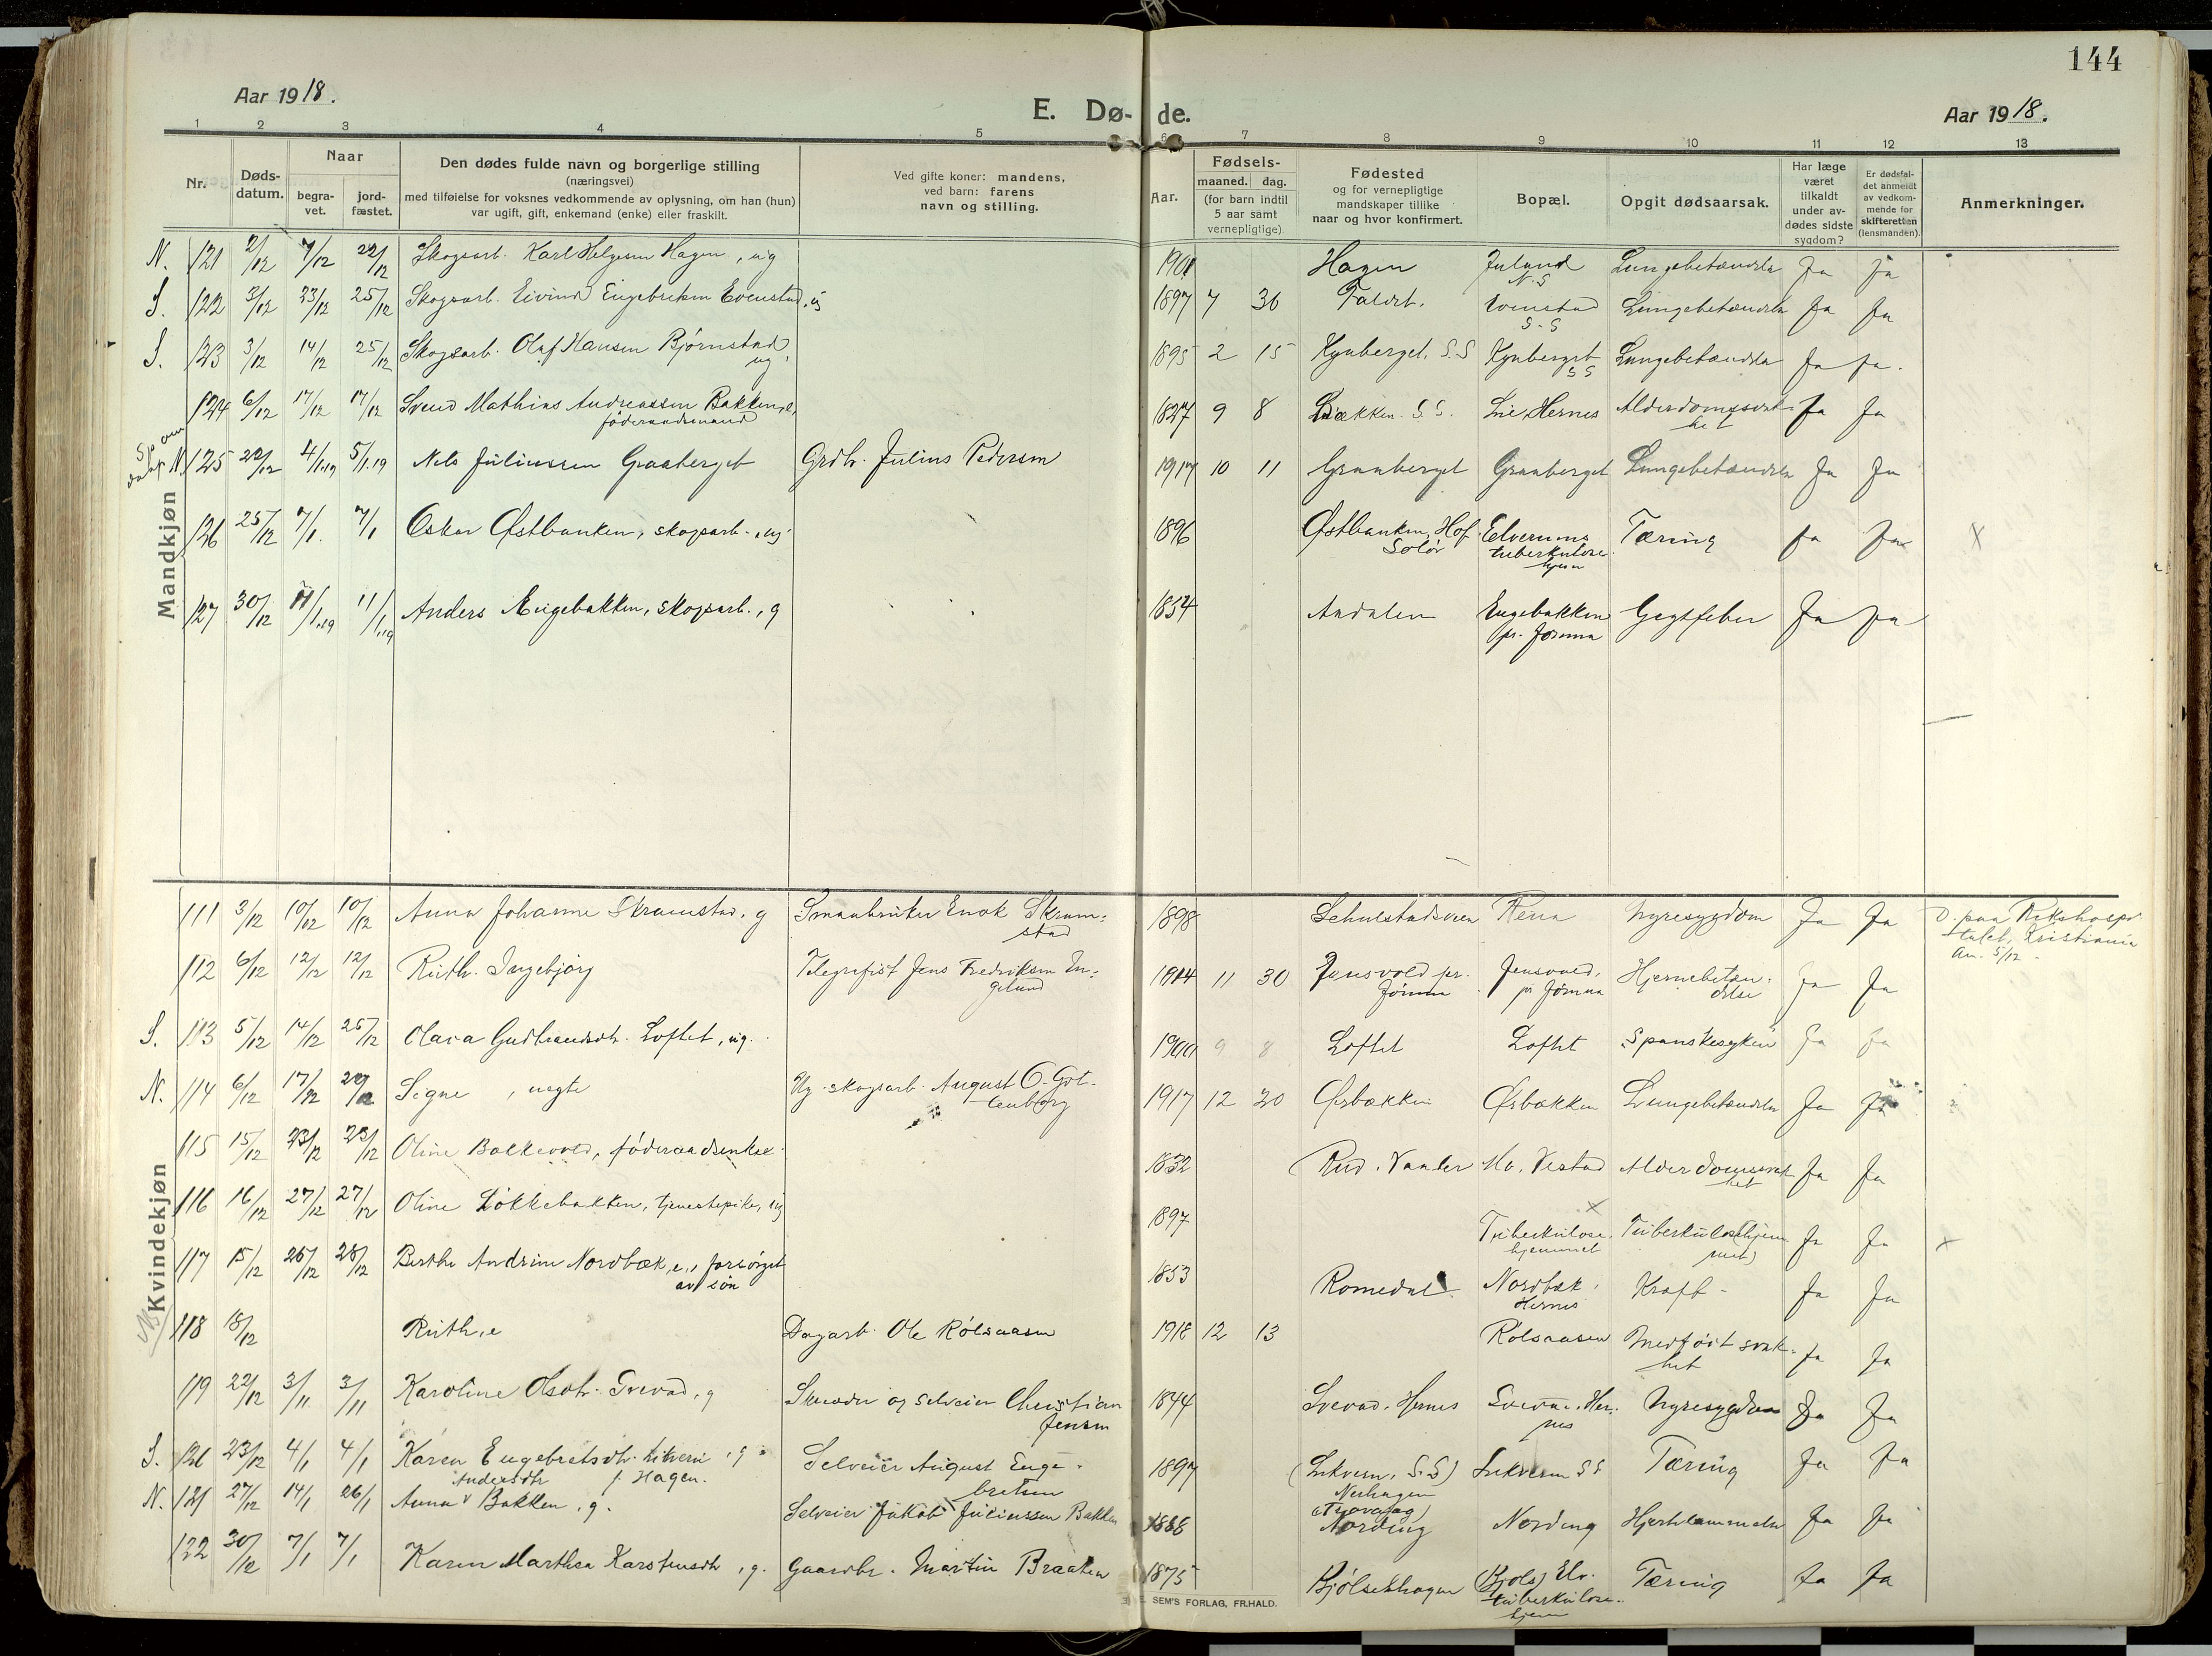 144
Aar 1918.
E. Dø- de.
Aar 1918.
1 2 3 4 5 6 7 8 9 10 11 12 13
Nr.
Døds-datum.
Naar
begra-vet.
jord-fæstet.
Den dødes fulde navn og borgerlige stilling
(næringsvei)
med tilføielse for voksnes vedkommende av oplysning, om han (hun)
var ugift, gift, enkemand (enke) eller fraskilt.
Ved gifte koner: mandens,
ved barn: farens
navn og stilling.
Aar.
Fødsels-
maaned. dag.
(for barn indtil
5 aar samt
vernepligtige)
Fødested
og for vernepligtige
mandskaper tillike
naar og hvor konfirmert.
Bopæl.
Opgit dødsaarsak.
Har læge
været
tilkaldt
under av-
dødes sidste
sygdom?
Er dødsfal-
det anmeldt
av vedkom-
mende for
skifteretten
(lensmanden).
Anmerkninger.
Mandkjøn
N. 121 2/12 7/12 22/12 Skogsarb. Karl Helgesen Hagen, ug 1901 Hagen Juland N.S Lungebetændelse Ja Ja
S. 122 3/12 23/12 25/12 Skogsarb. Eivind Engebretsen Evenstad, ug 1897 7 30 Evenstad S.S Lungebetændelse Ja Ja
S. 123 3/12 14/12 25/12 Skogsarb. Olaf Hansen Bjørnstad ug. 1895 2 15 Kynberget. S.S Kynberget SS Lungebetændelse Ja Ja.
124 6/12 17/12 17/12 Svend Mathias Andreassen Bakken, e,
føderaadsmand 1827 9 8 Bækken. S.S. Lie Hernes Alderdomssvak-
het Ja Ja
N. 125 28/12 4/1.19 5/1.19 Nils Juliussen Graaberget Grdb. Julius Pedersen 1917 10 11 Graaberget Graaberget Lungebetændelse Ja Ja
126 25/12 7/1. 7/1 Oskar Østbanken, skogsarb., ug. 1896 Østbanken, Hof
Solør Elverums
tuberkulose
hjem Tæring Ja Ja X
127 30/12 11/1.19 11/1.19 Anders Engebakken, skogsarb., g 1854 Aadalen Engebakken
pr. Jømna Gigtfeber Ja Ja
Kvindekjøn
111 3/12 10/12 10/12 Anna Johanne Skramstad, g Smaabruker Enok Skram-
stad 1898 Rena Nyresygdom Ja Ja D. paa Rikshospi
talet, Kristiania
An. 5/12
112 6/12 12/12 12/12 Ruth Ingebjørg Telegrafist Jens Fredriksen En-
gelund 1914 11 30 Jensvold pr.
Jømna Jensvold,
pr Jømna Hjernebetæn-
delse Ja Ja
S. 113 5/12 14/12 25/12 Olava Gudbrandsdtr. Loftet, ug. 1900 9 8 Loftet Loftet Spanskesyken Ja Ja
N. 114 6/12 17/12 Signe, uegte Ug. skogsarb. August O. Got-
tenborg 1917 12 20 Øsbakken Øsbakken Lungebetændelse Ja Ja
115 15/12 23/12 23/12 Oline Bakkevold, føderaadsenke 1832 Rud. Vaaler Alderdomssvak
het Ja Ja
116 16/12 27/12 27/12 Oline Løkkebakken, tjenestepike, ug 1897 Tuberkulose
hjemmet X Tuberkulose(hjem
met) Ja Ja X
117 15/12 28/12 28/12 Berthe Andrine Nordbæk, e., forsørget
av søn 1853 Romedal Nordbæk,
Hernes Kræft Ja Ja
118 18/12 Ruth, e Dagarb. Ole Rølsaasen 1918 12 13 Rølsaasen Medfødt svak-
het Ja Ja
119 22/12 3/11 3/11 Karoline Olsdtr. Svevad, g Skrædder og selveier Christian
Jensen 1844 Svevad. Hernes Svevad. Her-
nes Nyresygdom Ja Ja
S. 120 23/12 4/1 4/1 Karen Engebretsdtr. , g
f. Hagen. Selveier August Enge-
bretsen 1897 Tæring Ja Ja
N. 121 27/12 14/1 26/1 Anna Andersdtr Bakken, g. Selveier Jakob Juliussen Bakken 1888 Nording Nording Ja Ja
122 30/12 7/1 7/1 Karen Marthea Karstensdtr, g. Gaardbr. Martin Braaten 1875 Kjølsethagen (Kjøls) Elv.
tuberkulose-
hjem Tæring Ja Ja
E. SEM'S FORLAG, FR.HALD.